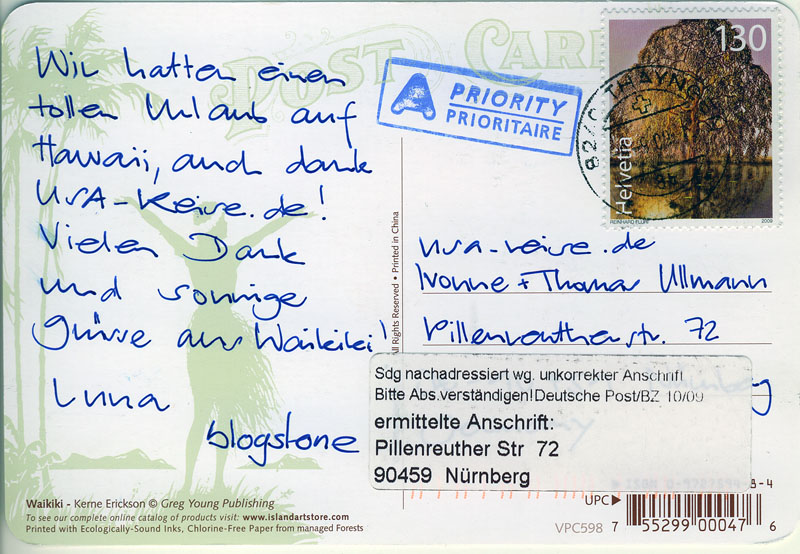 POST CARD
Wir hatten einen
tollen Urlaub auf
Hawaii, auch dank
USA-Reise.de!
Vielen Dank
und sonnige
Grüsse aus Waikiki!
Luna
blogstone
A PRIORITY
PRIORITAIRE
130
Helvetia
REINHARD
2009
THAYN
All Rights Reserved • Printed in China
usa-reise.de
Ivonne + Thomas Ullmann
Pillenreutherstr. 72
Sdg nachadressiert wg. unkorrekter Anschrift
Bitte Abs.verständigen!Deutsche Post/BZ 10/09
ermittelte Anschrift:
Pillenreuther Str 72
90459 Nürnberg
Waikiki - Kerne Erickson © Greg Young Publishing
To see our complete online catalog of products visit: www.islandartstore.com
Printed with Ecologically-Sound Inks, Chlorine-Free Paper from managed Forests
UPC
VPC598 7 55299 00047 6